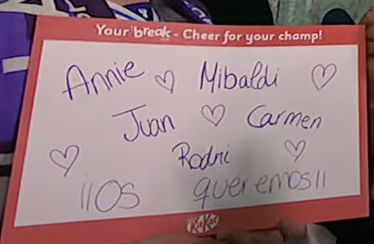 Your break - Cheer for your champ!
Annie ♡ Mibaldi ♡
Juan ♡ Carmen
♡ Rodri ♡
¡¡Os queremos!!
KitKat